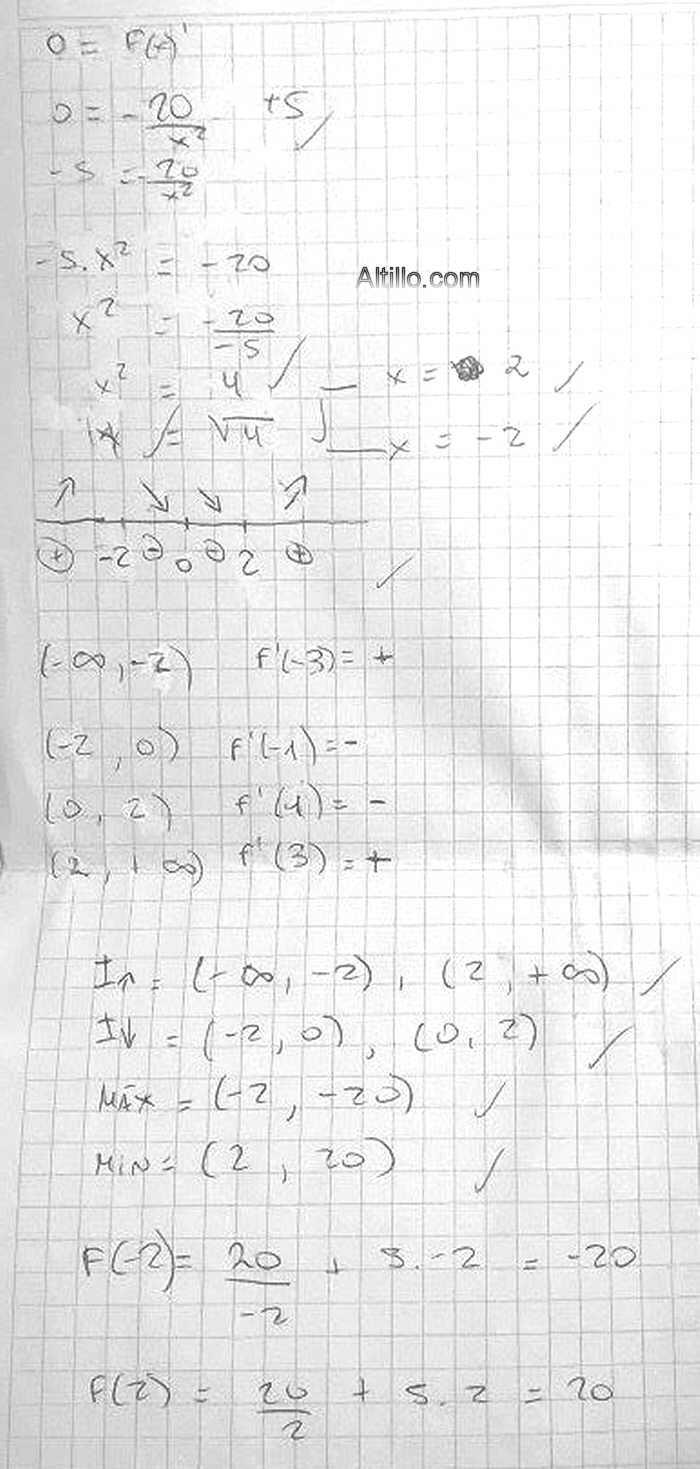 0 = F(x)'
0 = - 20/x² +5
-5 = - 20/x²
-5.x² = -20
Altillo.com
x² = -20/-5
x² = 4 x = 2
|x| = √4 x = -2
↗ ↘ ↘ ↗
+ -2 - 0 - 2 +
(-∞, -2) f'(-3) = +
(-2, 0) f'(-1) = -
(0, 2) f'(1) = -
(2, +∞) f'(3) = +
I↑ = (-∞, -2), (2, +∞)
I↓ = (-2, 0), (0, 2)
MÁX = (-2, -20)
MIN = (2, 20)
F(-2) = 20/-2 + 5.-2 = -20
F(2) = 20/2 + 5.2 = 20